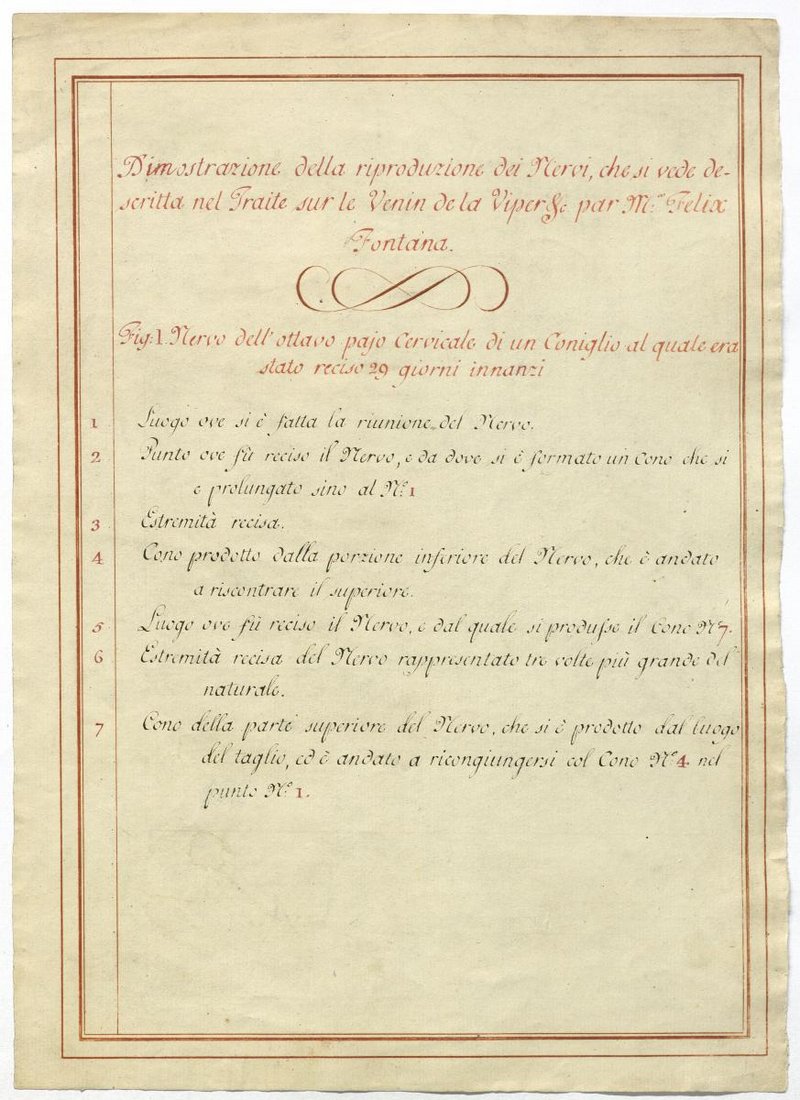 Dimostrazione della riproduzione dei Nervi, che si vede de-
scritta nel Traite sur le Venin de la Vipere par M.r Felix
Fontana.
Fig: 1. Nervo dell' ottavo pajo Cervicale di un Coniglio al quale era
stato reciso 29 giorni innanzi
1 Luogo ove si è fatta la riunione del Nervo.
2 Punto ove fù reciso il Nervo, e da dove si è formato un Cono che si
e prolungato sino al N.o 1
3 Estremità recisa.
4 Cono prodotto dalla porzione inferiore del Nervo, che è andato
a riscontrare il superiore.
5. Luogo ove fù reciso il Nervo, e dal quale si produſse il Cono N.o 7.
6 Estremità recisa del Nervo rappresentato tre volte più grande del
naturale.
7 Cono della parte superiore del Nervo, che si è prodotto dal luogo
del taglio, ed è andato a ricongiungersi col Cono N.o 4. nel
punto N.o 1.